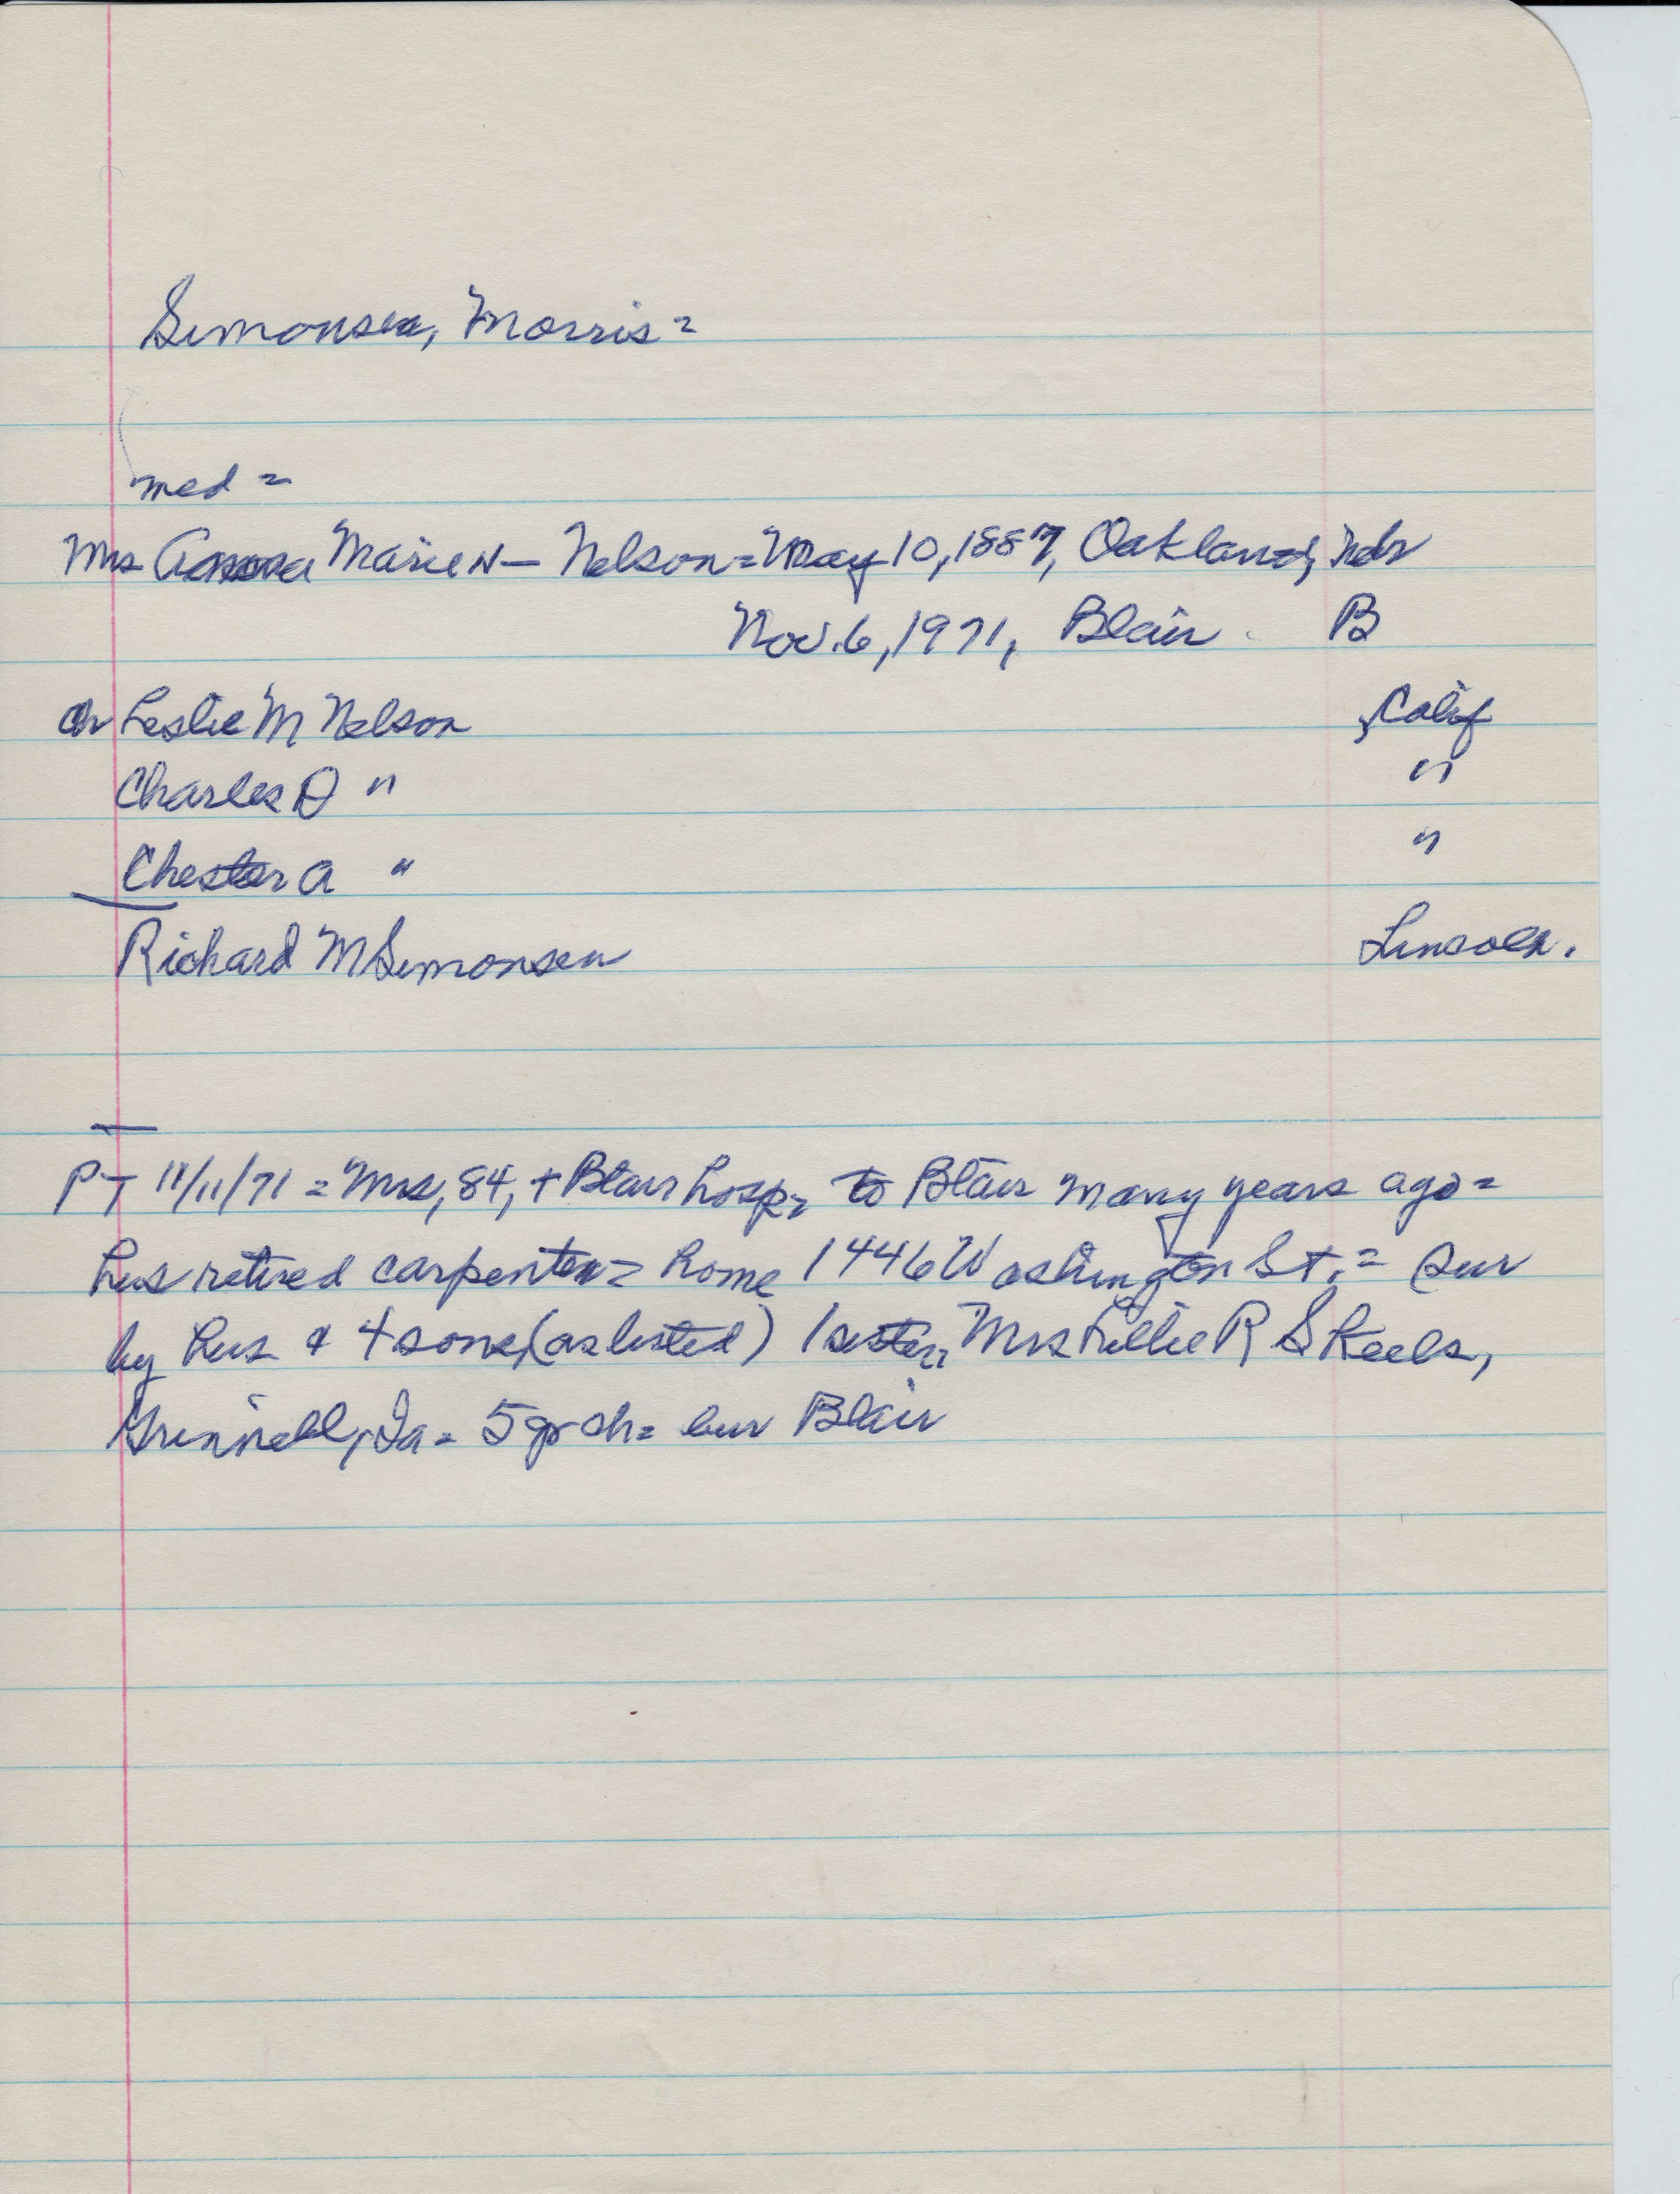 Simonsen, Morris =
med =
Mrs Anna Marie N — Nelson = May 10, 1887, Oakland, Nebr
Nov. 6, 1971, Blair. B
ch Leslie M Nelson , Calif
Charles D " "
Chester A " "
Richard M Simonsen Lincoln.
PT 11/11/71 = Mrs, 84, + Blair hosp = to Blair many years ago =
hus retired carpenter = home 1446 Washington St. = sur
by hus & 4 sons, (as listed) 1 sister, Mrs Lillie R Skeels,
Grinnell, Ia = 5 gr ch = bur Blair